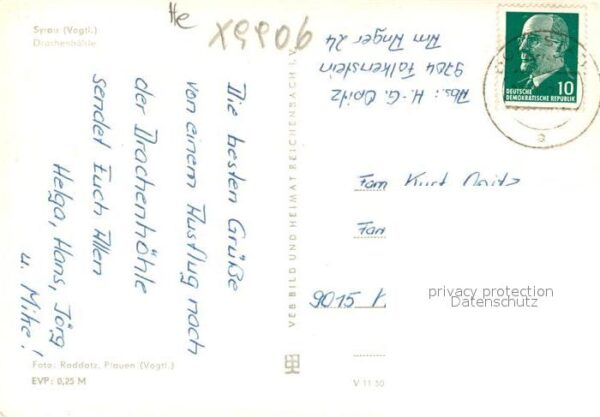 Syrau (Vogtl.)
Drachenhöhle
He
X99806
Abs.: H.-G. Opitz
9704 Falkenstein
Am Anger 24
DEUTSCHE
DEMOKRATISCHE REPUBLIK
10
Die besten Grüße
von einem Ausflug nach
der Drachenhöhle
sendet Euch Allen
Helga, Hans, Jörg
u. Mike!
VEB BILD UND HEIMAT REICHENBACH I. V.
Fam Kurt Opitz
9015 K
privacy protection
Datenschutz
Foto: Raddatz, Plauen (Vogtl.)
EVP: 0,25 M
V 11 50